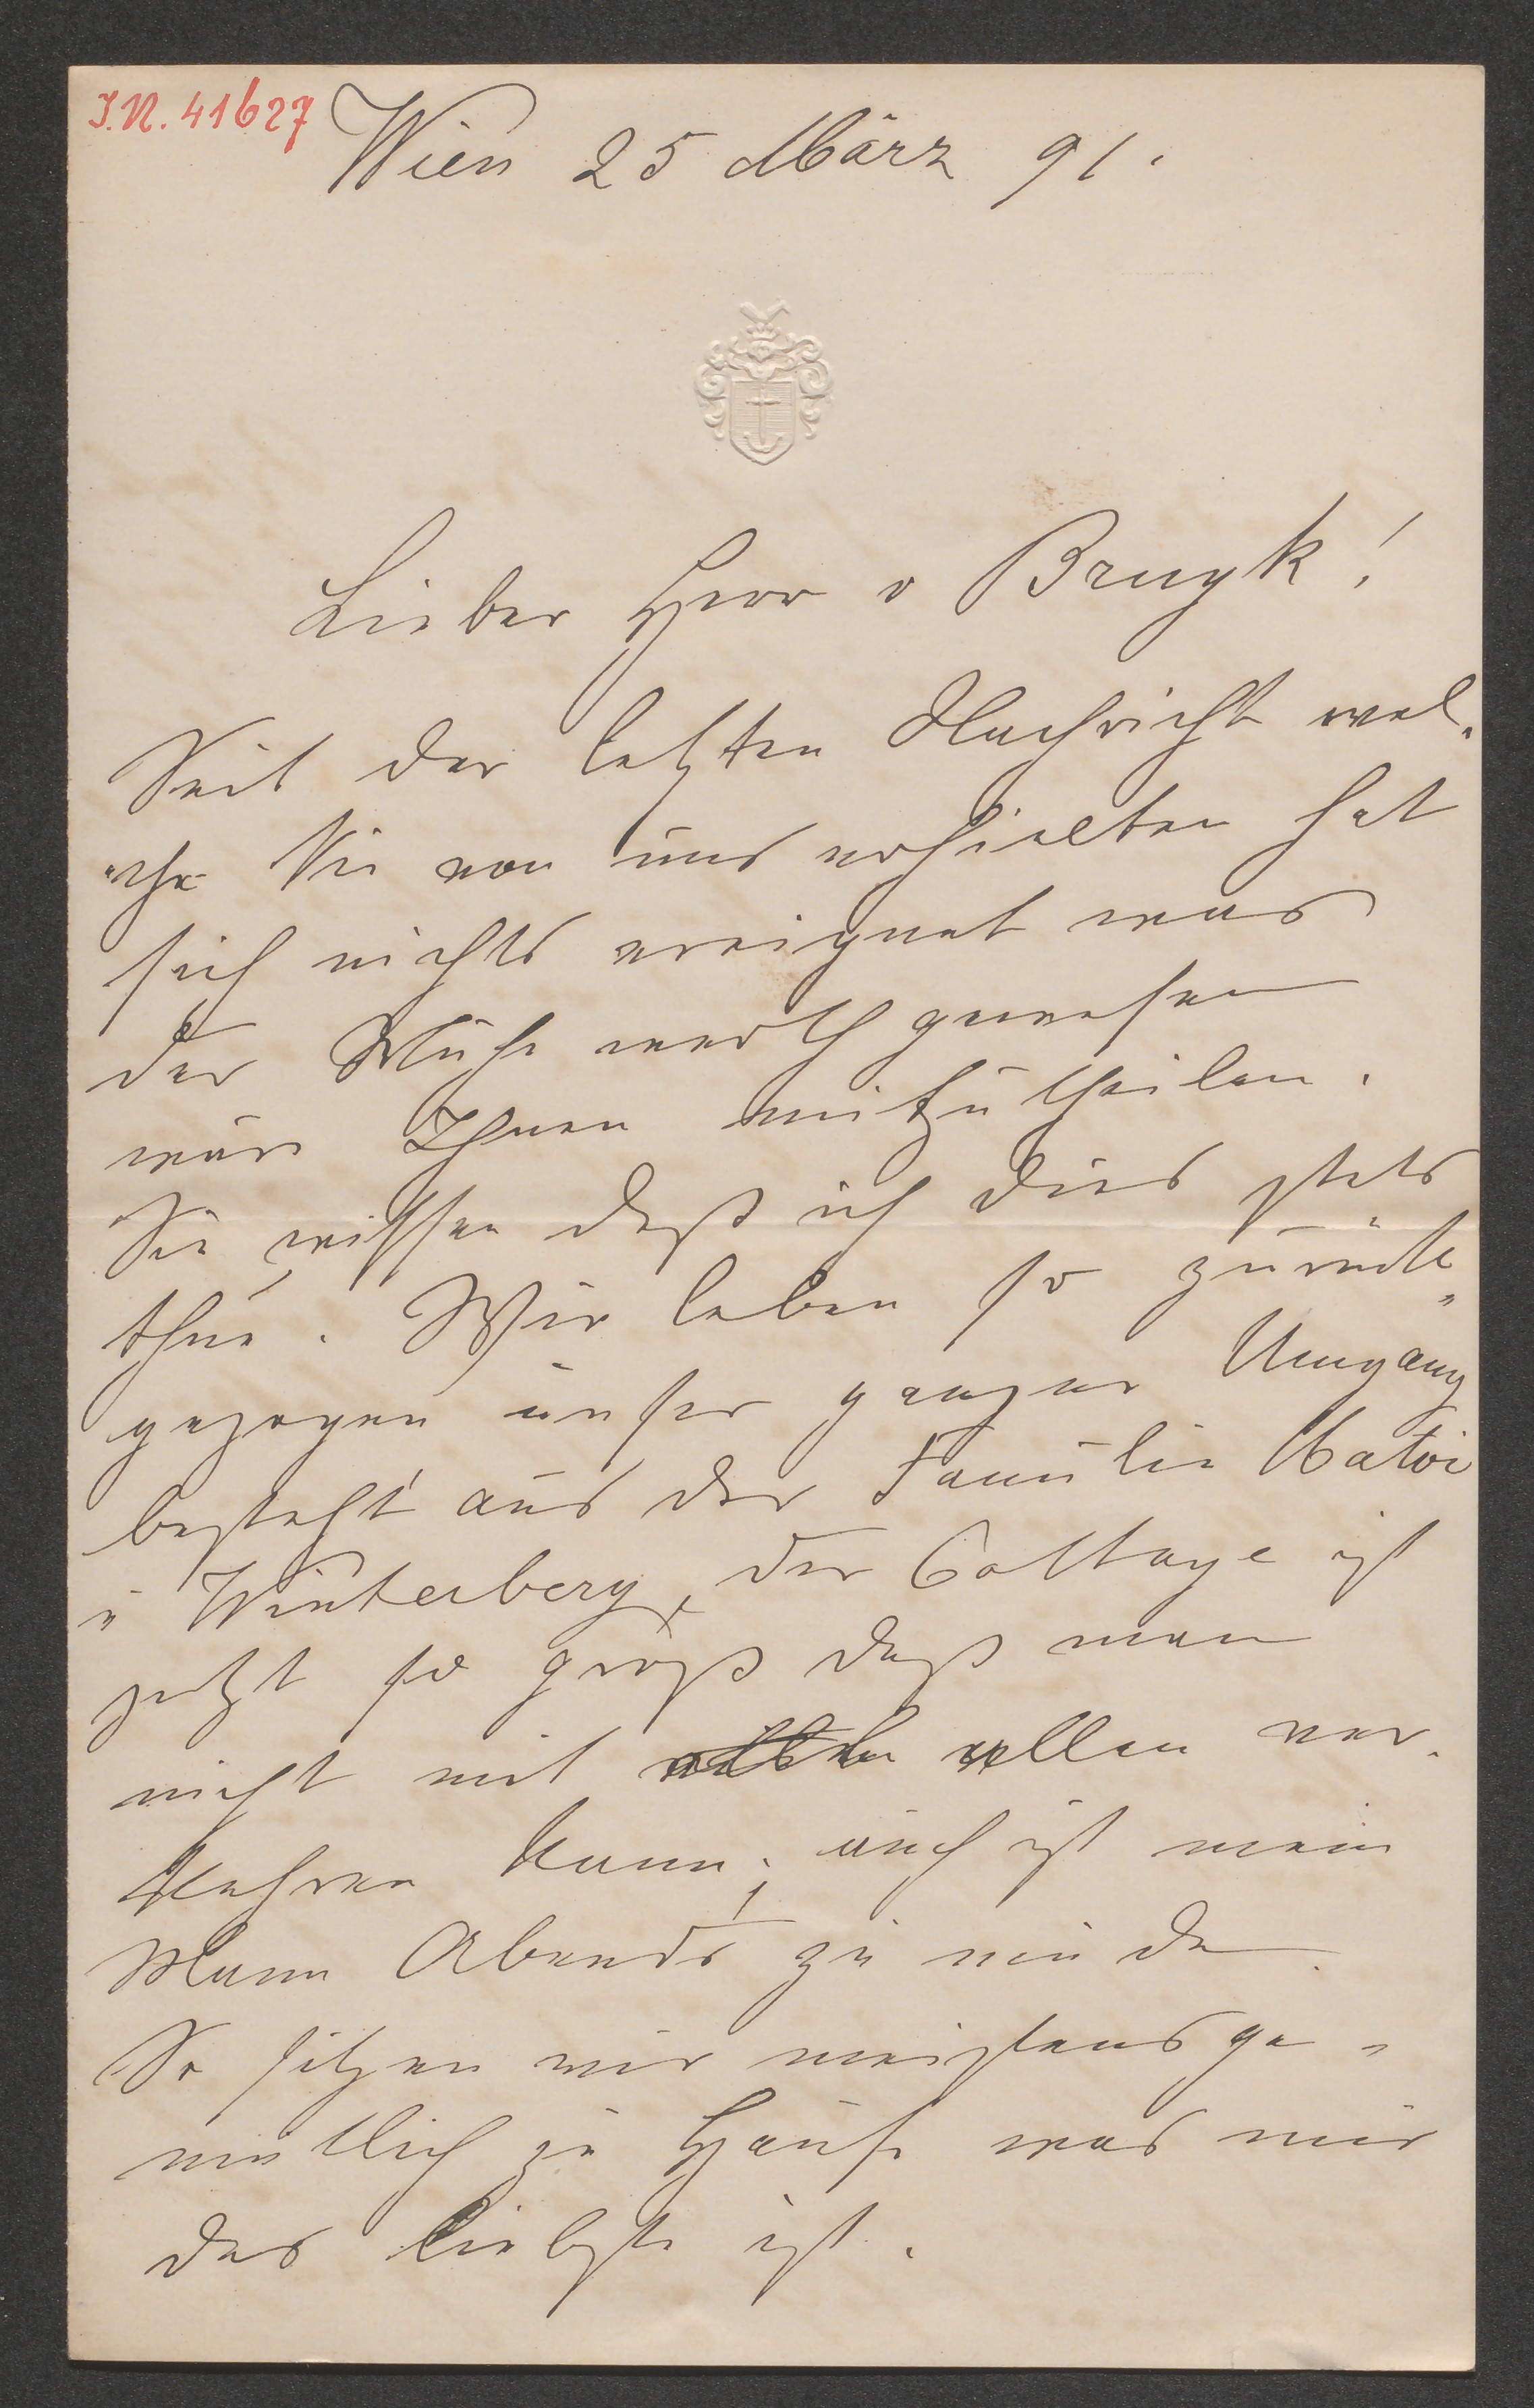 I.N. 41627
Wien 25 März 91.
Lieber Herr v Bruyk!
Seit der letzten Nachricht wel-
che Sie von uns erhielten hat
sich nichts ereignet was
der Mühe werth gewesen
wäre Ihnen mitzutheilen.
Sie wissen daß ich dies stets
thue. Wir leben so zurück-
gezogen unser ganzer Umgang
besteht aus der Familie
u Winterberg, der Cottage ist
jetzt so groß daß man
nicht mit allen ver-
kehren kann; auch ist mein
Mann Abends zu müde
So sitzen wir meistens ge-
müthlich zu Hause was mir
das liebste ist.